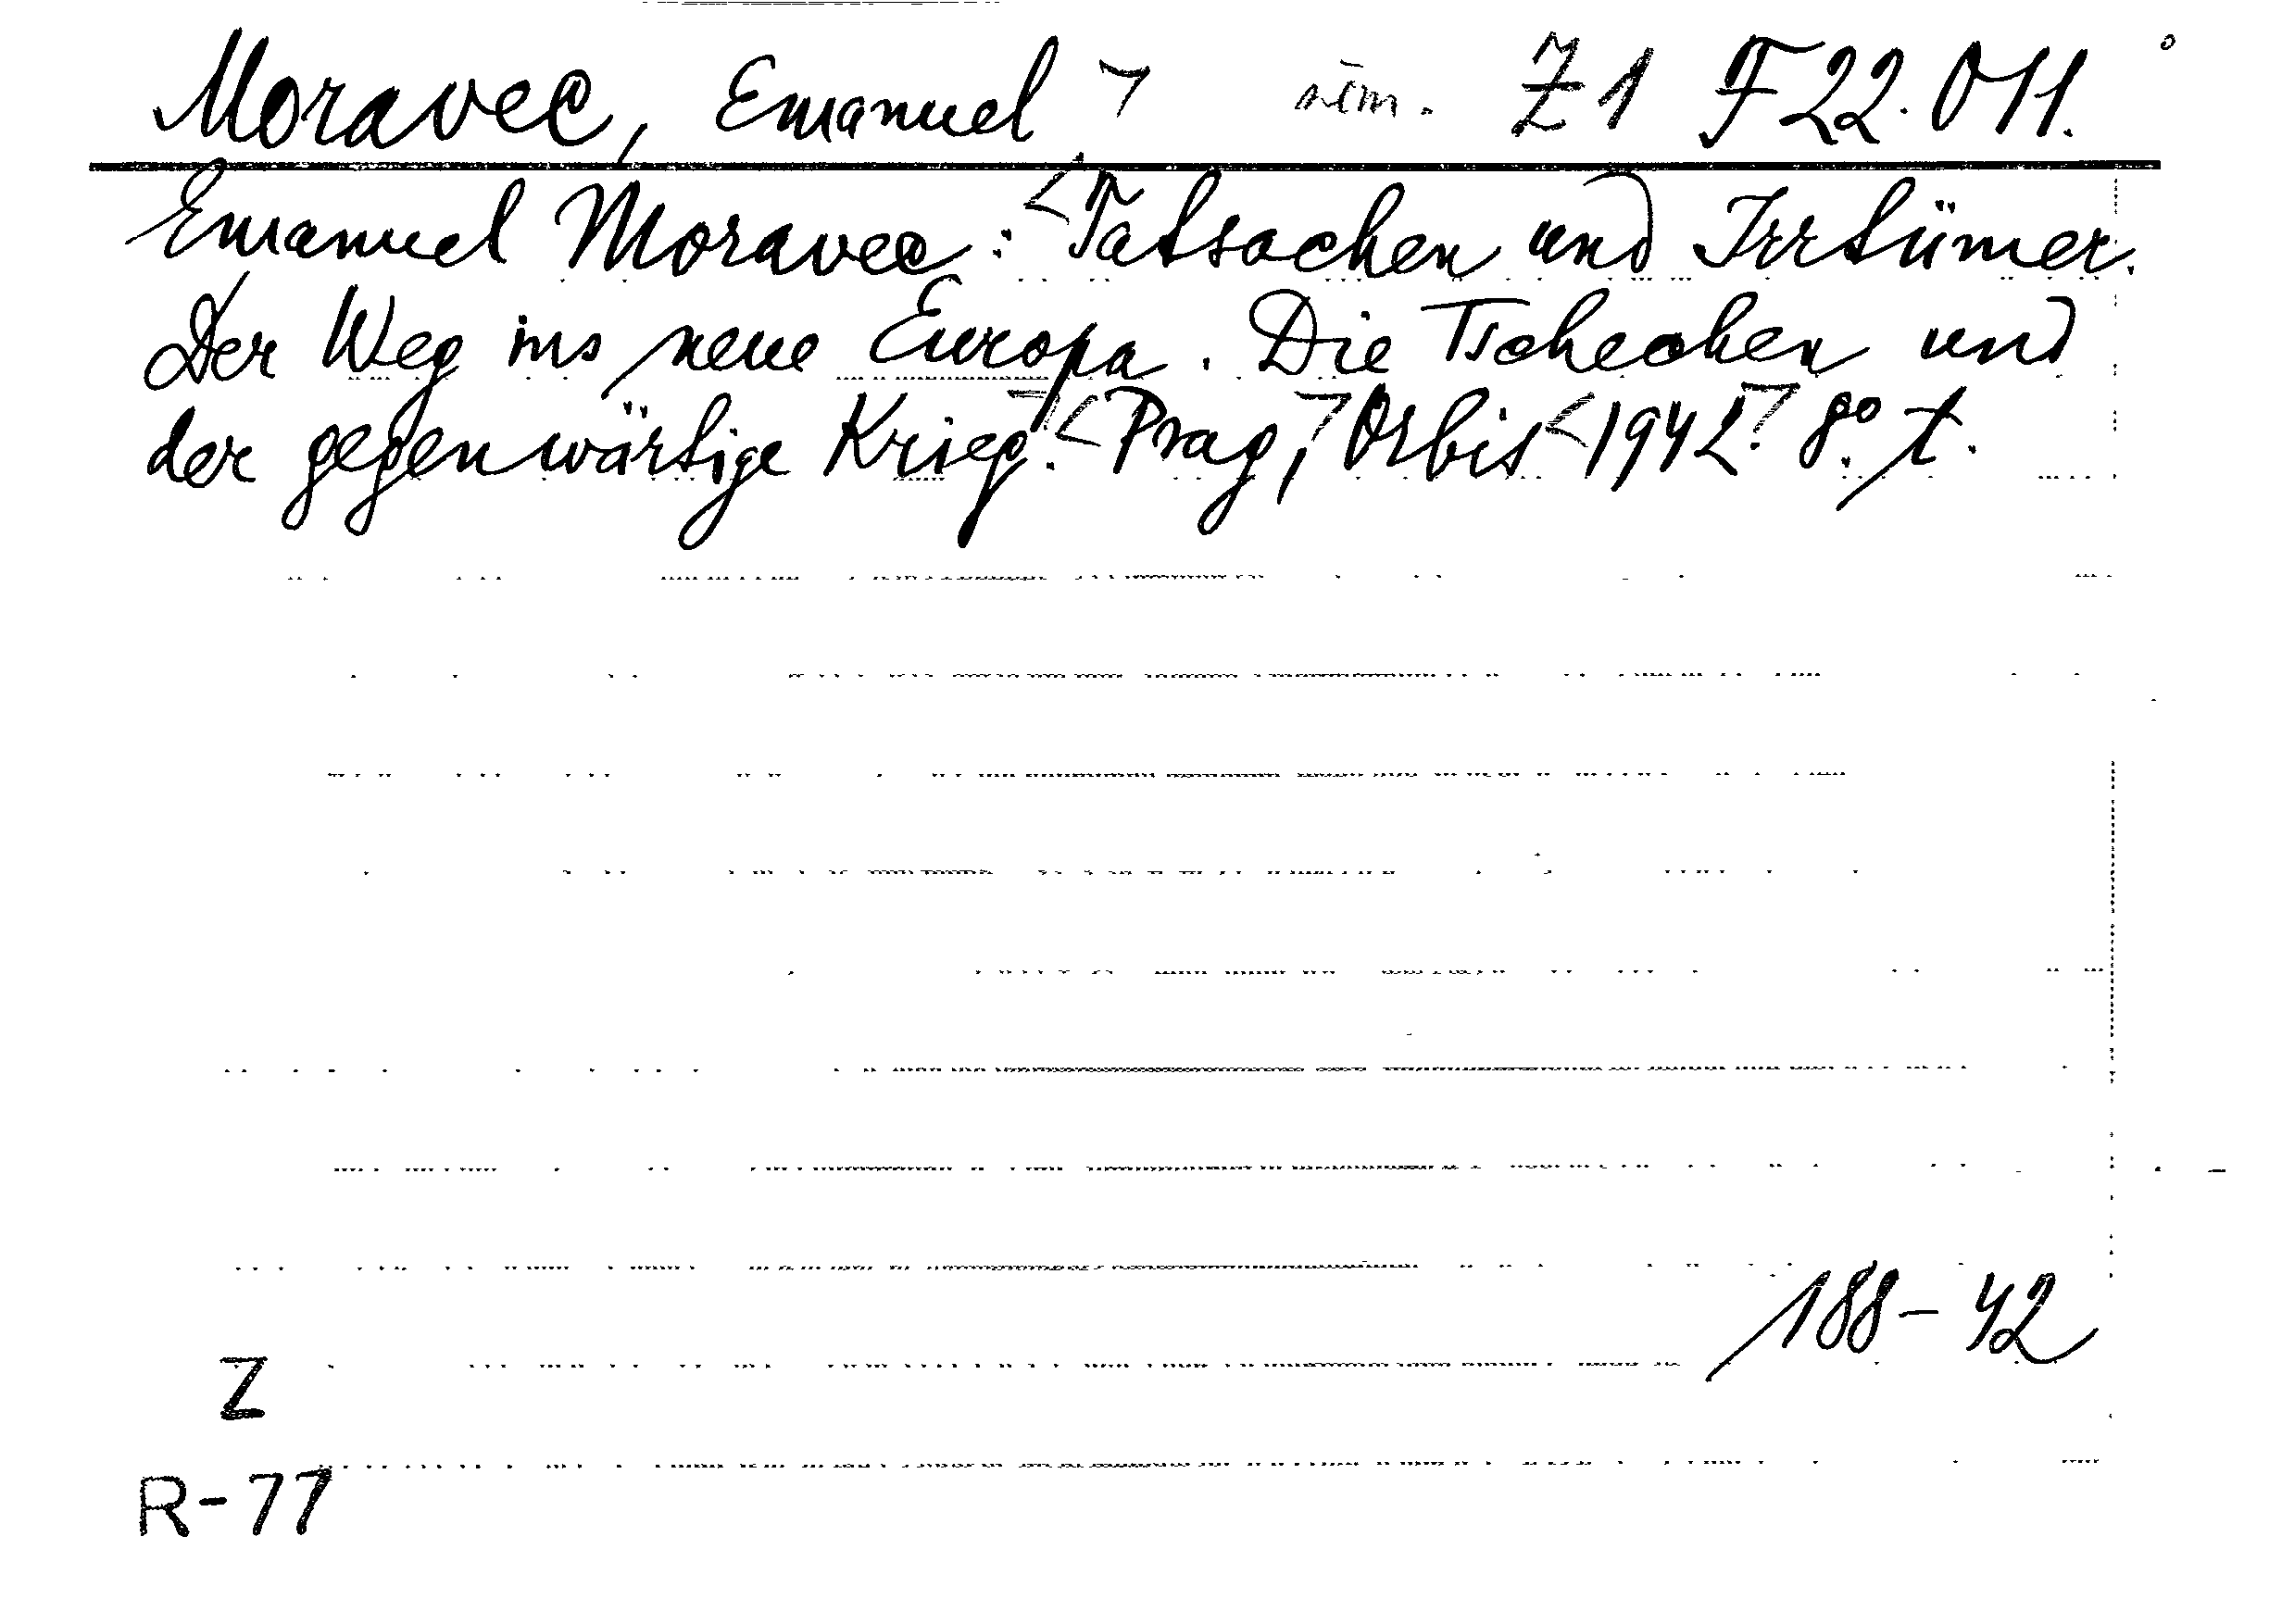 Moravec, Emanuel > něm. Z1 F 22.011.
Emanuel Moravec: <Tatsachen und Irrtümer.
Der Weg ins neue Europa. Die Tschechen und
der gegenwärtige Krieg.> <Prag,> Orbis <1942.> 8° t.
188-42
Z
R-77